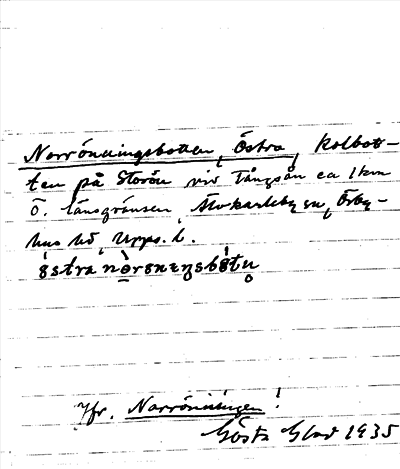 Norrönningsbotten, Östra, kolbot-
ten på Storön vid Tångsån ca 1 km
ö. länsgränsen, Älvkarleby sn, Örby-
hus hd, Upps. l.
östra nòrøneŋsbòtu̥
Jfr. Norrönningen!
Gösta Glad 1935